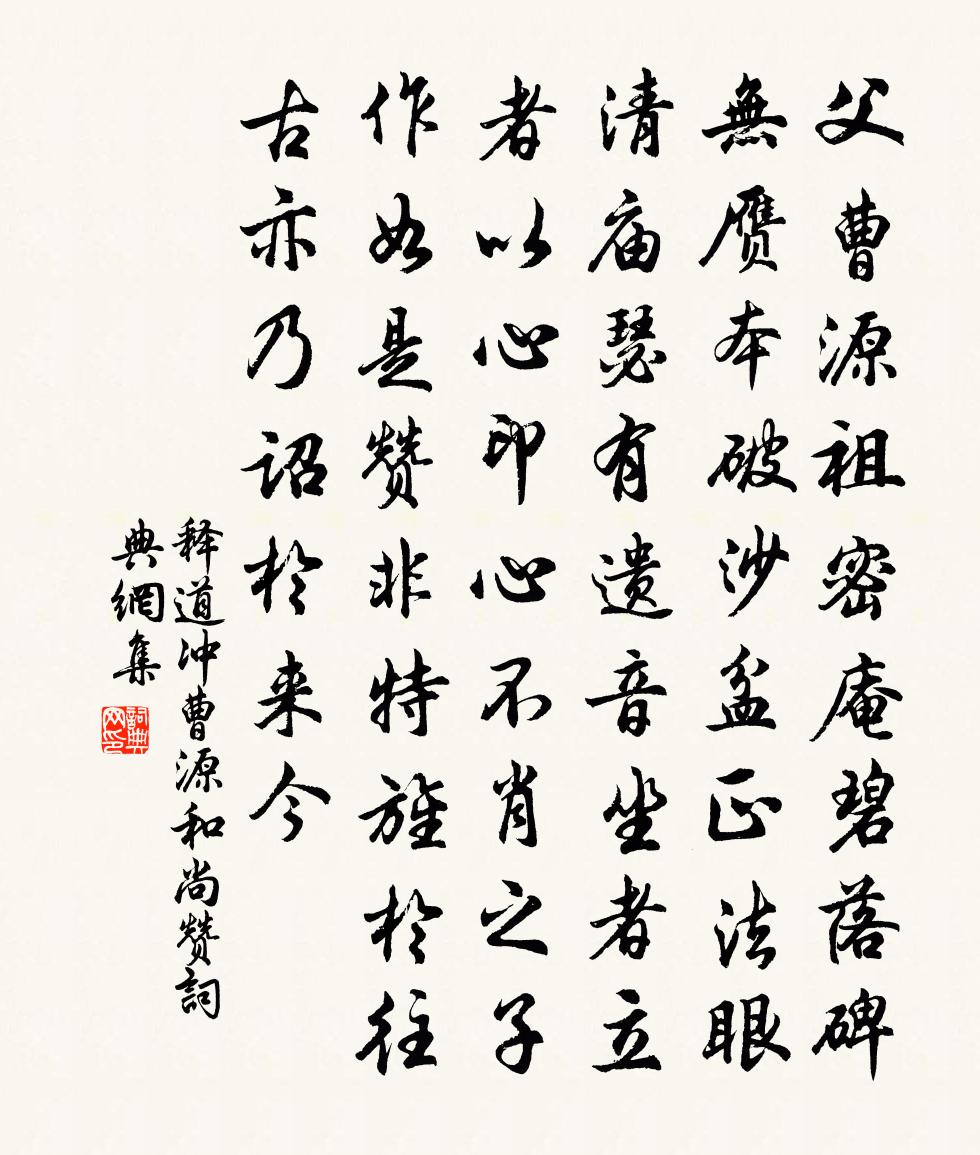 父曹源祖密庵碧落碑
無贋本破沙盆正法眼
清庙瑟有遗音坐者立
者以心印心不肖之子
作如是赞非特旌於往
古亦乃诏於来今
释道冲曹源和尚赞詞
典網集
詞典网印